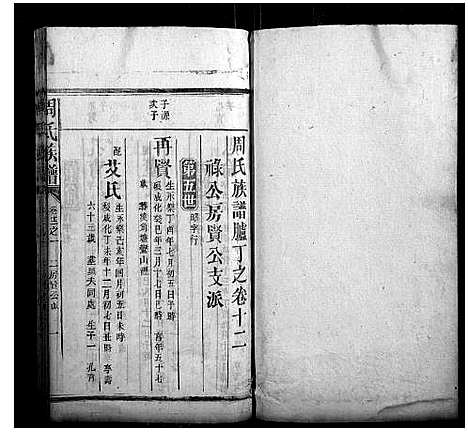 周氏族譜臚丁之卷十二
祿公房賢公支派
第五世 昭字行
子源
次子
再賢 生永樂丁酉年七月初五日子時
歿成化癸巳年三月十七日巳時 壽年五十七
配 艾氏 生永樂己亥年四月初五日未時
歿成化丁未年十二月初七日丑時 享壽
六十三歲 葬與夫同處 生子一 孔育
周氏族譜